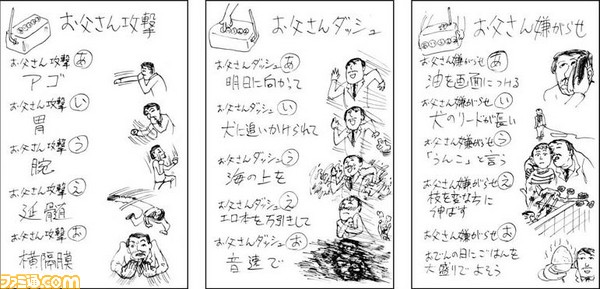 お父さん攻撃
お父さん攻撃 あ
アゴ
お父さん攻撃 い
胃
お父さん攻撃 う
腕
お父さん攻撃 え
延髄
お父さん攻撃 お
横隔膜
お父さんダッシュ
お父さんダッシュ あ
明日に向かって
お父さんダッシュ い
犬に追いかけられて
お父さんダッシュ う
海の上を
お父さんダッシュ え
エロ本を万引きして
お父さんダッシュ お
音速で
お父さん嫌がらせ
お父さん嫌がらせ あ
油を画面につける
お父さん嫌がらせ い
犬のリードが長い
お父さん嫌がらせ う
「うんこ」と言う
お父さん嫌がらせ え
枝を変な方に
伸ばす
お父さん嫌がらせ お
おでんの日にごはんを
大盛りでよそう
ファミ通.com